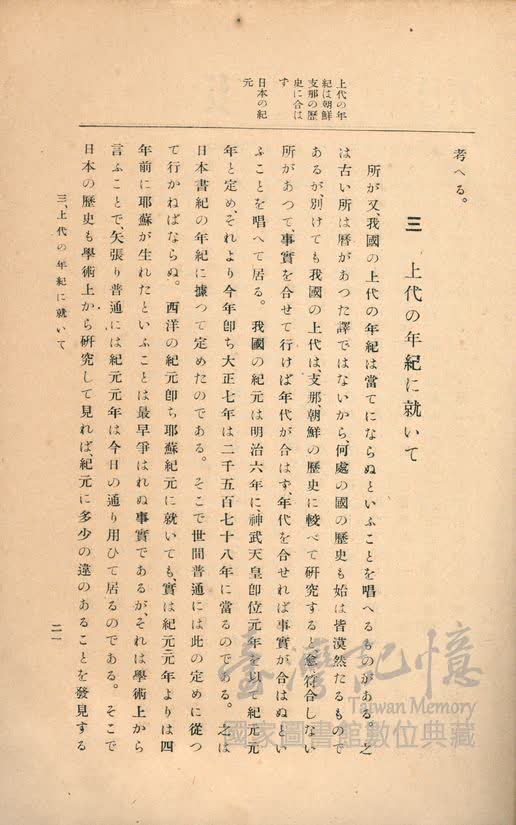 上代の年
紀は朝鮮
支那の歴
史に合は
す
日本の紀
元
考へる。
三 上代の年紀に就いて
所が又、我國の上代の年紀は當てにならぬといふことを唱へるものがある。之
は古い所は曆があつた譯ではないから、何處の國の歷史も始は皆漠然たるもので
あるが、別けても我國の上代は、支那、朝鮮の歷史に較べて硏究すると愈符合しない
所があつて、事實を合せて行けば年代が合はず、年代を合せれば事實が合はぬとい
ふことを唱へて居る。我國の紀元は明治六年に、神武天皇卽位元年を以て紀元元
年と定め、それより今年卽ち大正七年は二千五百七十八年に當るのである。之は
日本書紀の年紀に據つて定めたのである。そこで世間普通には此の定めに從つ
て行かねばならぬ。西洋の紀元卽ち耶蘇紀元に就いても、實は紀元元年よりは四
年前に耶蘇が生れたといふことは最早爭はれぬ事實であるが、それは學術上から
言ふことで、矢張り普通には紀元元年は今日の通り用ひて居るのである。そこで
日本の歷史も學術上から硏究して見れば、紀元に多少の違のあることを發見する
三、上代の年紀に就いて
二一
臺灣記憶
Taiwan Memory
國家圖書館數位典藏